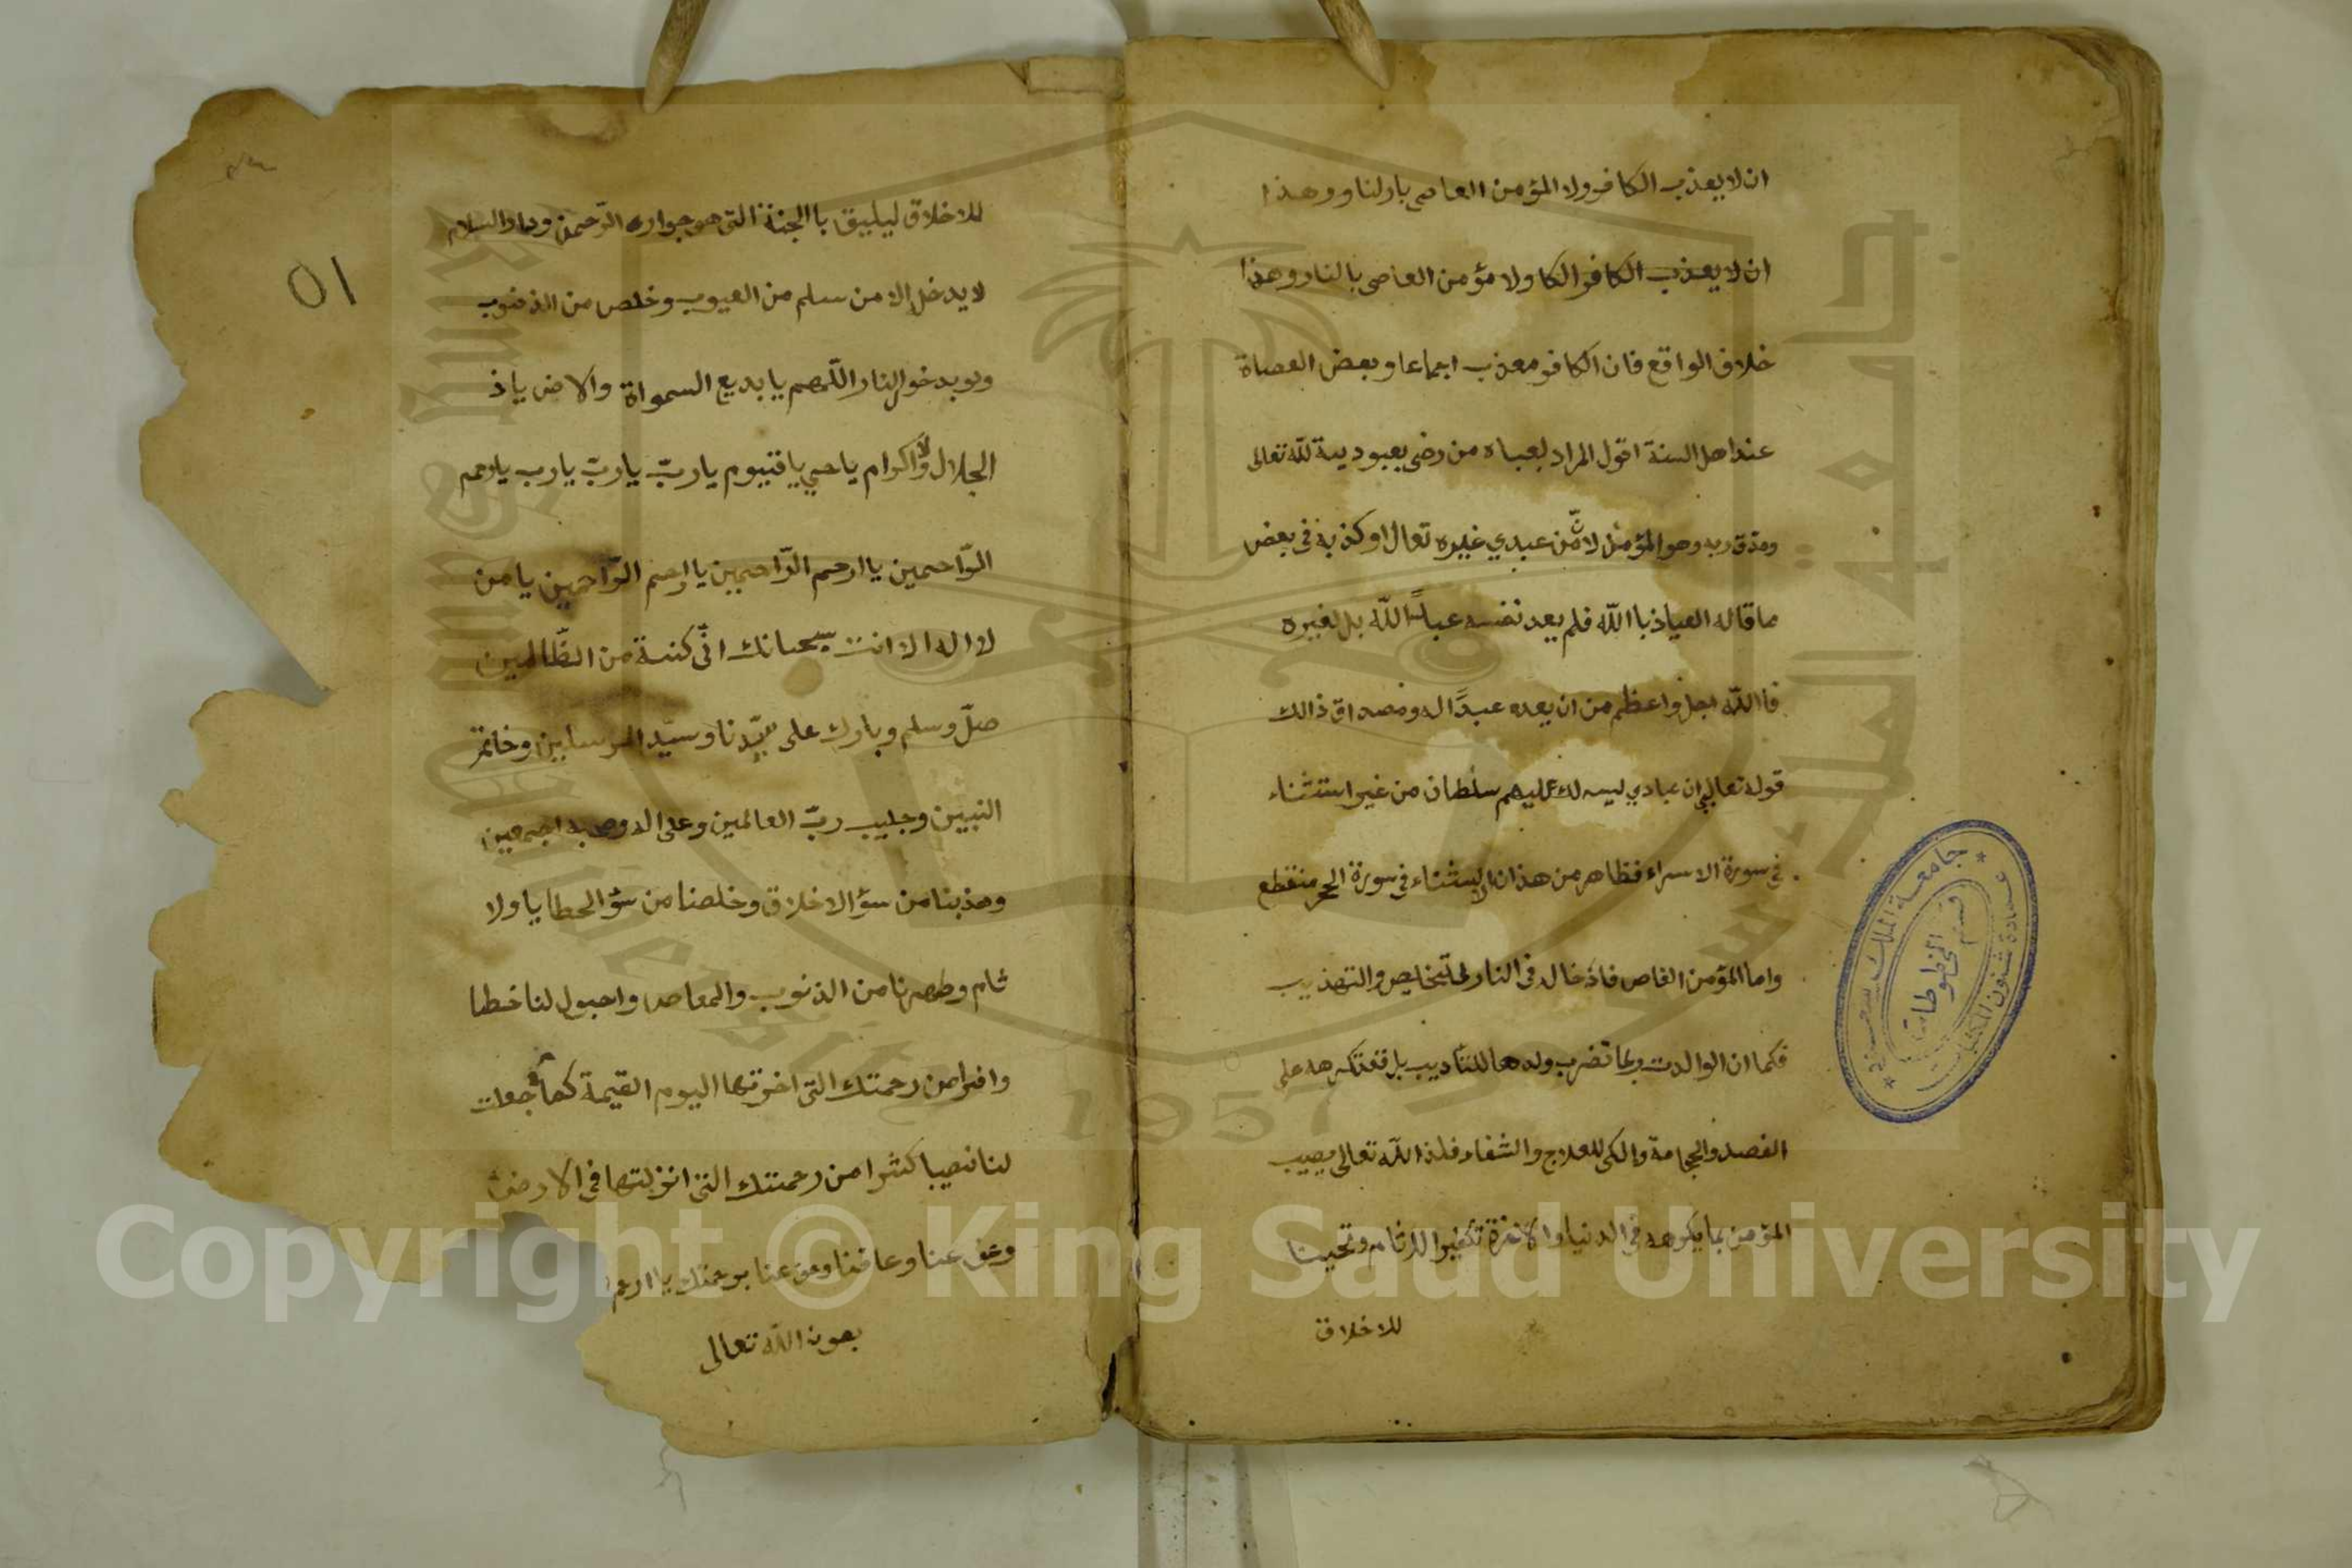 ان لا يعذب الكافر ولا المؤمن العاصي بادلنا وو هذا
ان لا يعذب الكافر الكا ولا مؤمن العاصى بالنار وهذا
خلاف الواقع فان الكافر معذب اجماعا وبعض العصاة
عند اهل السنة اقول المراد لعباده من رضي بعبوديية للّه تعالى
وصدق ربه وهو المؤمن لا من عبدي غيره تعال او كذبه فى بعض
ما قاله العياذ باالله فلم يعد نفسه عبداً للّه بل لغيره
فاالله اجل واعظم من ان يعده عبدًا له ومصداق ذالك
قوله تعالى ان عبادي ليس لك عليهم سلطان من غير استثناء
فى سورة الاسراء فظاهر من هذا ان الاستثناء فى سورة الحجر منقطع
واما المؤمن العاص فادخاله فى النار للتخليص والتهذيب
فكما ان الوالدت ربما تضرب ولدها للتأديب بل قد تكرهه على
الفصد والحجامة والكي للعلاج والشفاء فلذا اللّه تعالى يصيب
المؤمن بما يكرهه فى الدنيا والاخرة تكفيرا للاثام وتحسينا
للاخلاق
للاخلاق ليليق باالجنة التى هو جواره الرّحمن ودار السلام
لا يدخل إلا من سلم من العيوب وخلص من الذنوب
ولو بدخول النار اللّهم يا بديع السمواة والارض ياذ
الجلال والاكرام يا حي يا قيوم يا ربّ يا ربّ يا رب يا رحم
الرّاحمين يا ارحم الرّاحمين يا ارحم الرّاحمين يا من
لا اله الا انت سبحانك انّى كنة من الظّالمين
صلّ وسلم وبارك على سيّدنا وسيّد المرسلين وخاتم
النبيين وحبيب ربّ العالمين وعلى اله وصحبه اجمعين
وهذبنا من سؤ الاخلاق وخلصنا من سؤ الخطايا ولا
ثام وطهرنا من الذنوب والمعاصى واجعل لنا خطا
وافرا من رحمتك التى اخرتها اليوم القيمة كما جعلت
لنا نصيبا كثيرا من رحمتك التى انزلتها فى الارض
وعف عنا وعافنا وعف عنا برحمتك يا ارحم
بعون اللّه تعالى
10
جامعة الملك سعود
عمادة شئون المكتبات
قسم المخطوطات
جامعة الملك سعود
King Saud University
1957
Copyright © King Saud University